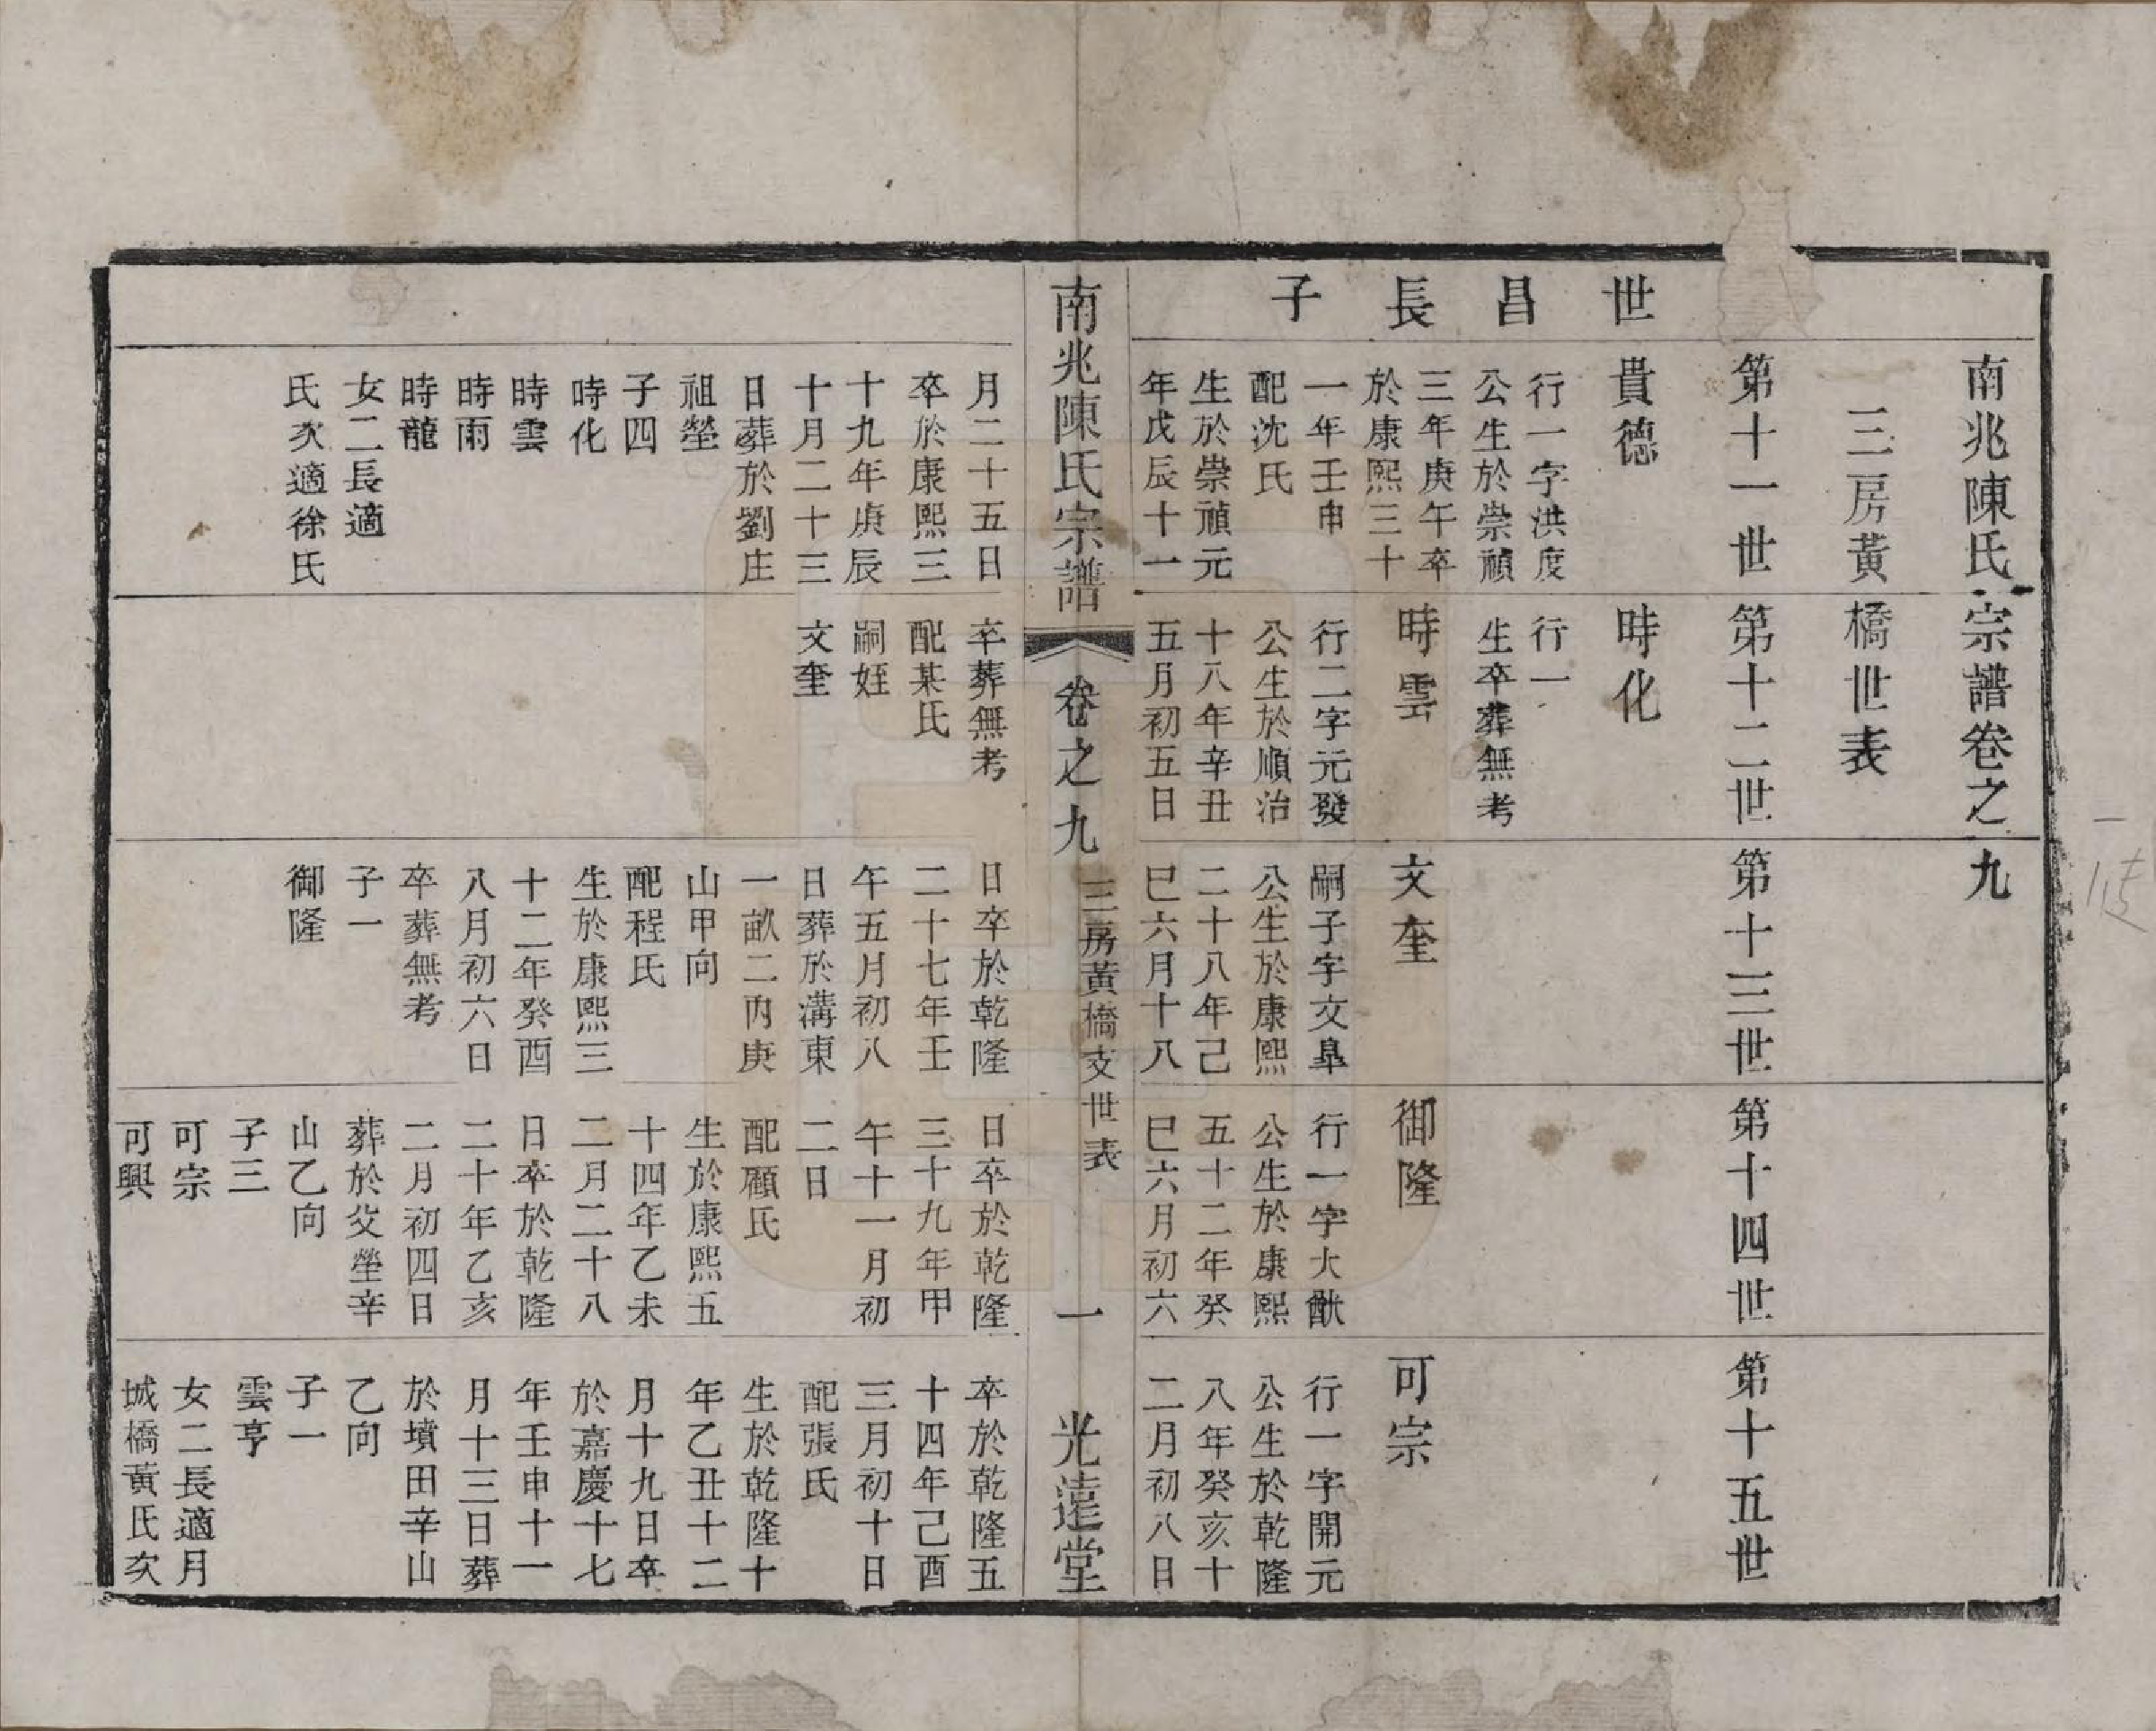 南兆陳氏宗譜卷之九
三房黃橋世表
世昌長子
第十一世
貴德
行一字洪度
公生於崇禎
三年庚午卒
於康熙三十
一年壬申
配沈氏
生於崇禎元
年戊辰十一
月二十五日
卒於康熙三
十九年庚辰
十月二十三
日葬於劉庄
祖塋
子四
時化
時雲
時雨
時龍
女二長適
氏次適徐氏
第十二世
時化
行一
生卒葬無考
時雲
行二字元發
公生於順治
十八年辛丑
五月初五日
卒葬無考
配某氏
嗣姪
文奎
第十三世
文奎
嗣子字文臯
公生於康熙
二十八年己
巳六月十八
日卒於乾隆
二十七年壬
午五月初八
日葬於溝東
一畝二丙庚
山甲向
配程氏
生於康熙三
十二年癸酉
八月初六日
卒葬無考
子一
御隆
第十四世
御隆
行一字大猷
公生於康熙
五十二年癸
巳六月初六
日卒於乾隆
三十九年甲
午十一月初
二日
配顧氏
生於康熙五
十四年乙未
二月二十八
日卒於乾隆
二十年乙亥
二月初四日
葬於父塋辛
山乙向
子三
可宗
可興
第十五世
可宗
行一字開元
公生於乾隆
八年癸亥十
二月初八日
卒於乾隆五
十四年己酉
三月初十日
配張氏
生於乾隆十
年乙丑十二
月十九日卒
於嘉慶十七
年壬申十一
月十三日葬
於墳田辛山
乙向
子一
雲亨
女二長適月
城橋黃氏次
南兆陳氏宗譜
卷之九
三房黃橋支世表
一
光遠堂